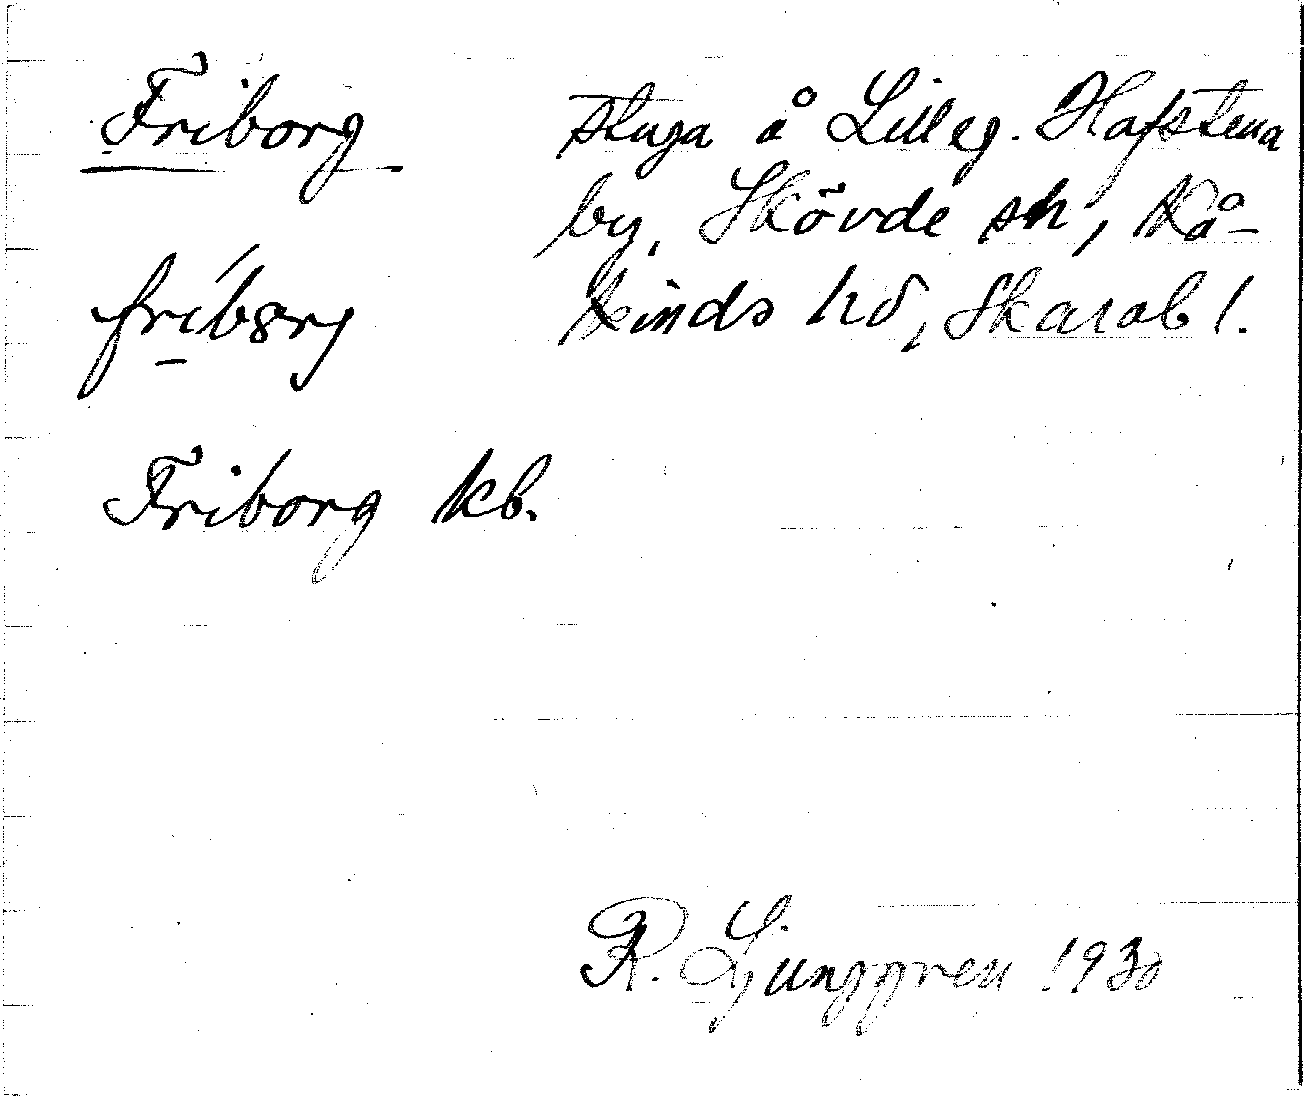 Friborg stuga å Lilleg. Hafstena
by, Skövde sn, Kå-
fribårj kinds hd, Skarab l.
Friborg kb.
R. Ljunggren 1930